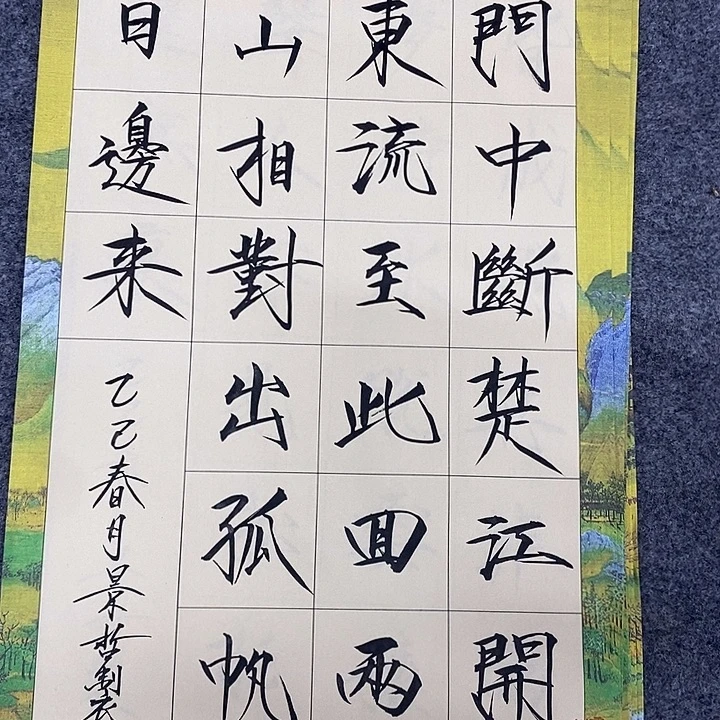 門中斷楚江開
東流至此回兩
山相對出孤帆
日邊来
乙巳春月景哲制